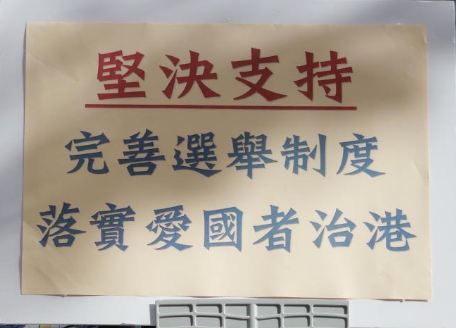 堅決支持
完善選舉制度
落實愛國者治港